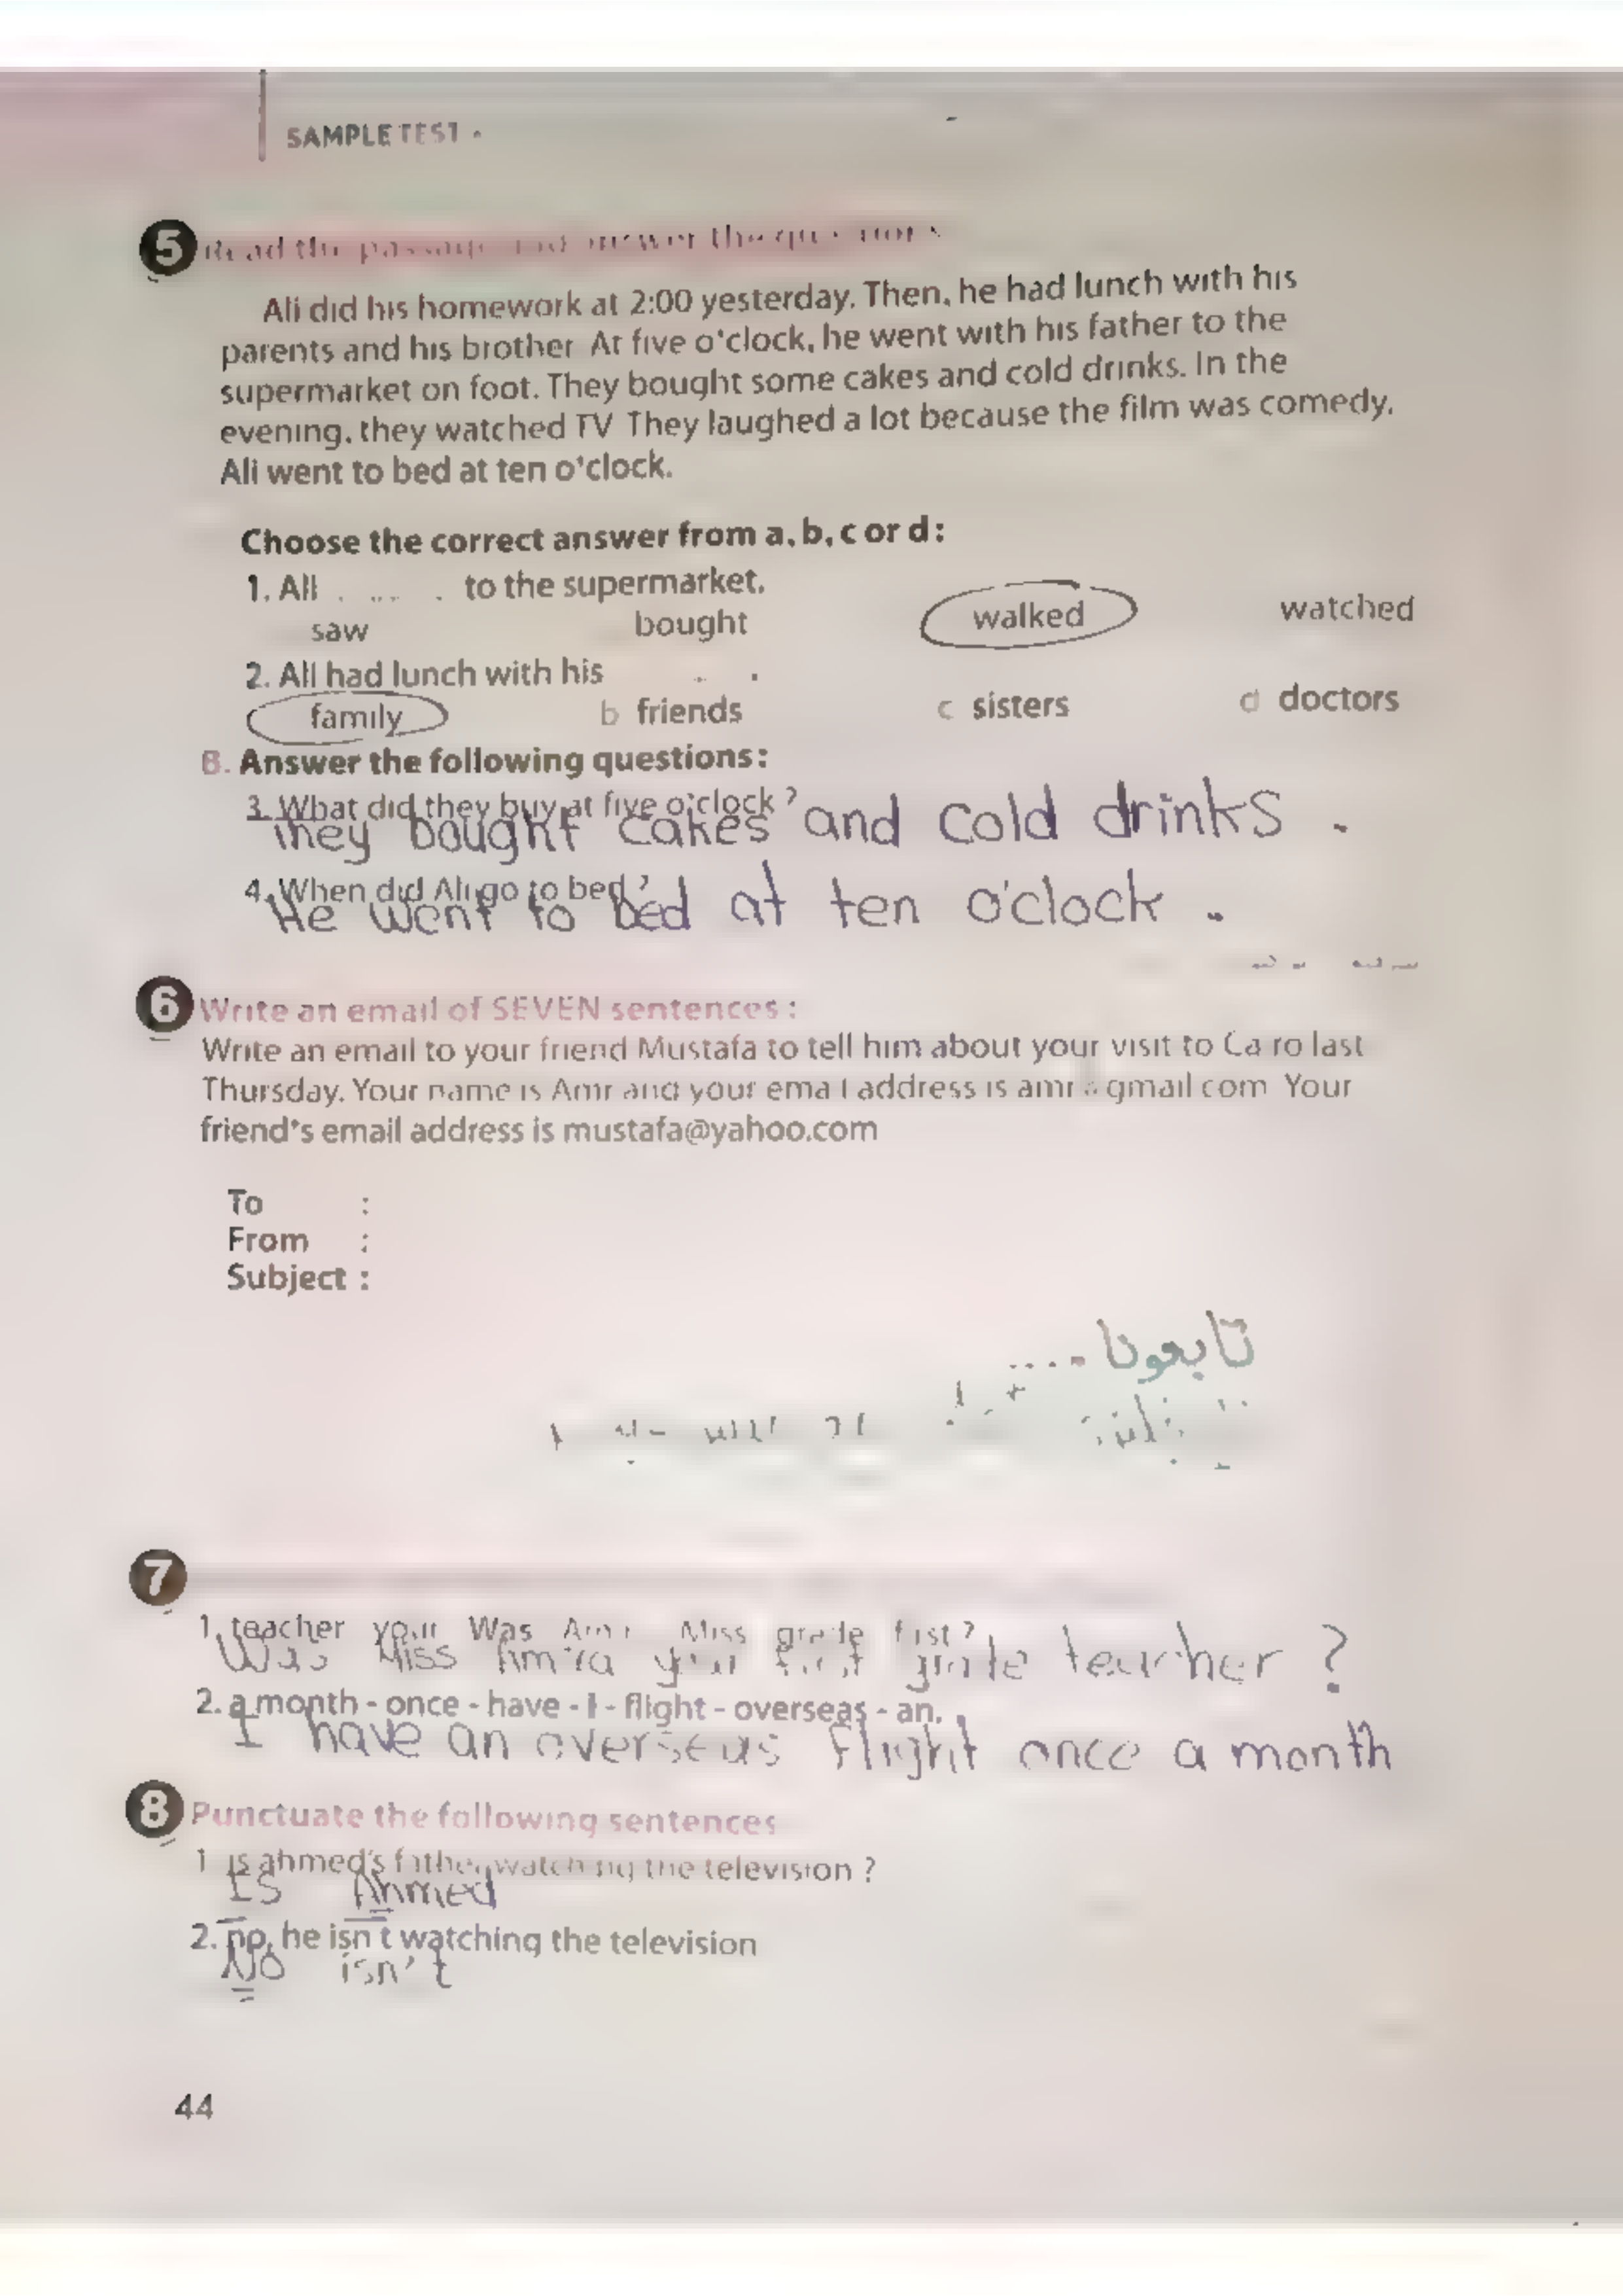 SAMPLE TEST
5 Read the passage and answer the questions
Ali did his homework at 2:00 yesterday. Then, he had lunch with his
parents and his brother. At five o'clock, he went with his father to the
supermarket on foot. They bought some cakes and cold drinks. In the
evening, they watched TV. They laughed a lot because the film was comedy.
Ali went to bed at ten o'clock.
Choose the correct answer from a, b, c or d:
1. Ali to the supermarket.
saw bought walked watched
2. Ali had lunch with his
family b friends c sisters d doctors
B. Answer the following questions:
3. What did they buy at five o'clock ?
They bought cakes and cold drinks .
4. When did Ali go to bed ?
He went to bed at ten o'clock .
6 Write an email of SEVEN sentences :
Write an email to your friend Mustafa to tell him about your visit to Cairo last
Thursday. Your name is Amr and your email address is amr@gmail.com Your
friend's email address is mustafa@yahoo.com
To :
From :
Subject :
تابعونا ....
7
1. teacher your Was Miss grade first ?
Was Miss your first grade teacher ?
2. a month - once - have - I - flight - overseas - an.
I have an overseas flight once a month
8 Punctuate the following sentences
1 is ahmed's father watching the television ?
Is Ahmed
2. no, he isn t watching the television
No isn't
44